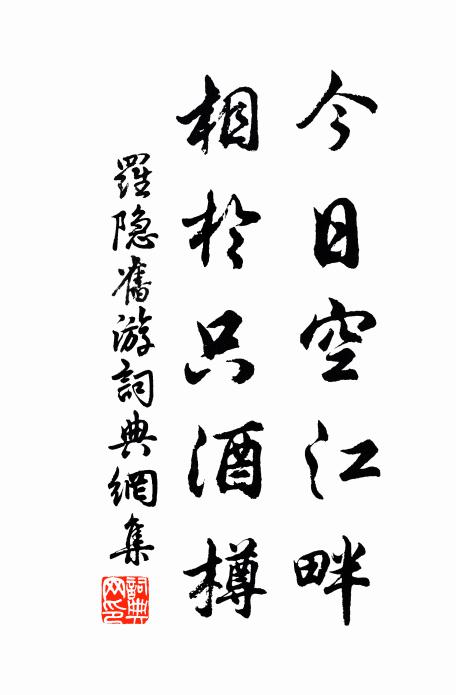 今日空江畔
相於只酒樽
羅隐舊游詞典網集
詞典
网印